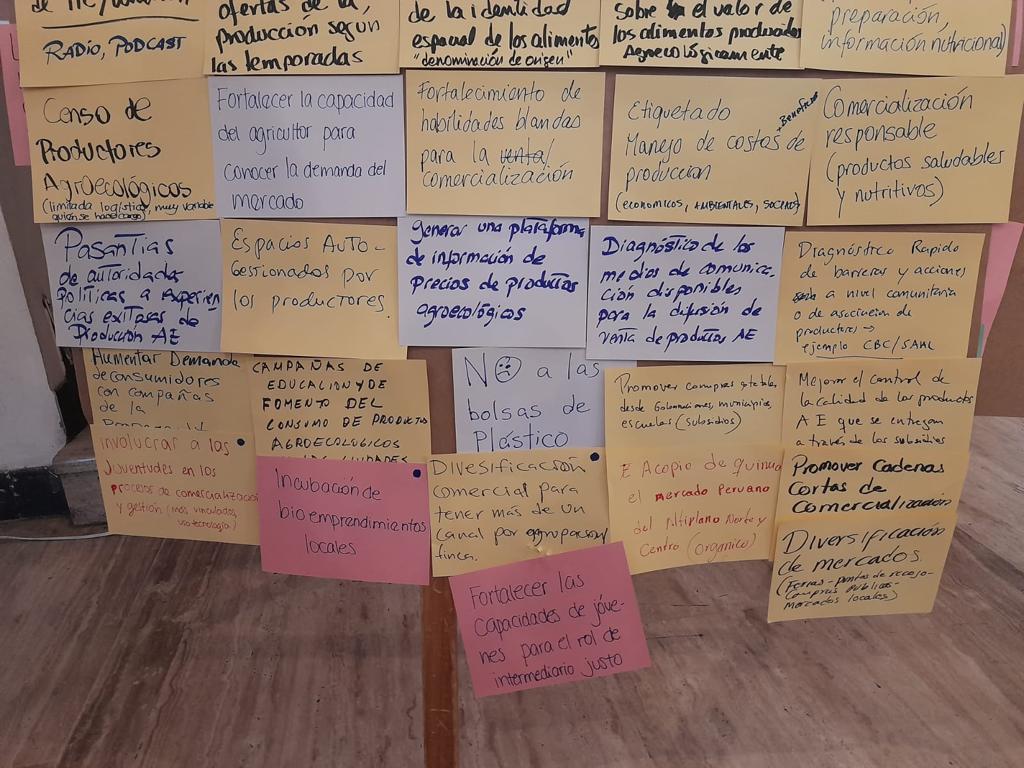 RADIO, PODCAST
ofertas de la,
producción según
las temporadas
de la identidad
espacial de los alimentos
"denominación de origen"
sobre el valor de
los alimentos producidos
Agroecológicamente
preparación,
información nutricional)
Censo de
Productores
Agroecológicos
(limitada logística, muy variable
quién se hace cargo)
Fortalecer la capacidad
del agricultor para
conocer la demanda del
mercado
Fortalecimiento de
habilidades blandas
para la venta/
comercialización
Etiquetado
+ Beneficios
Manejo de costos de
producción
(económicos, AMBIENTALES, SOCIALES)
Comercialización
responsable
(productos saludables
y nutritivos)
Pasantías
de autoridades
políticas a experien
cias exitosas de
Producción AE
Espacios AUTO-
Gestionados por
los productores.
generar una plataforma
de información de
Precios de productos
agroecológicos
Diagnóstico de los
medios de comunica-
ción disponibles
para la difusión de
venta de productos AE
Diagnóstico Rapido
de barreras y acciones
a nivel comunitario
o de asociacion de
productores →
ejemplo CBC/SAML
Aumentar Demanda
de consumidores
con campañas
de la
CAMPAÑAS DE
EDUCACION Y DE
FOMENTO DEL
CONSUMO DE PRODUCTOS
AGROECOLOGICOS
NO a las
bolsas de
Plástico
Promover compras estatales,
desde Gobernaciones, municipios,
escuelas (subsidios)
Mejorar el control de
la calidad de los productos
AE que se entregan
a través de los subsidios
Involucrar a las
juventudes en los
procesos de comercialización
y gestión (más vinculados
uso tecnología)
Incubación de
bio emprendimientos
locales
Diversificación
comercial para
tener más de un
canal por agrupación/
finca.
E Acopio de quinua
el mercado Peruano
del Altiplano Norte y
Centro (organico)
Promover Cadenas
Cortas de
Comercialización
Diversificación
de mercados.
(Ferias - puntos de recojo-
Compras Públicas-
Mercados locales)
Fortalecer las
capacidades de jóve-
nes para el rol de
intermediario justo